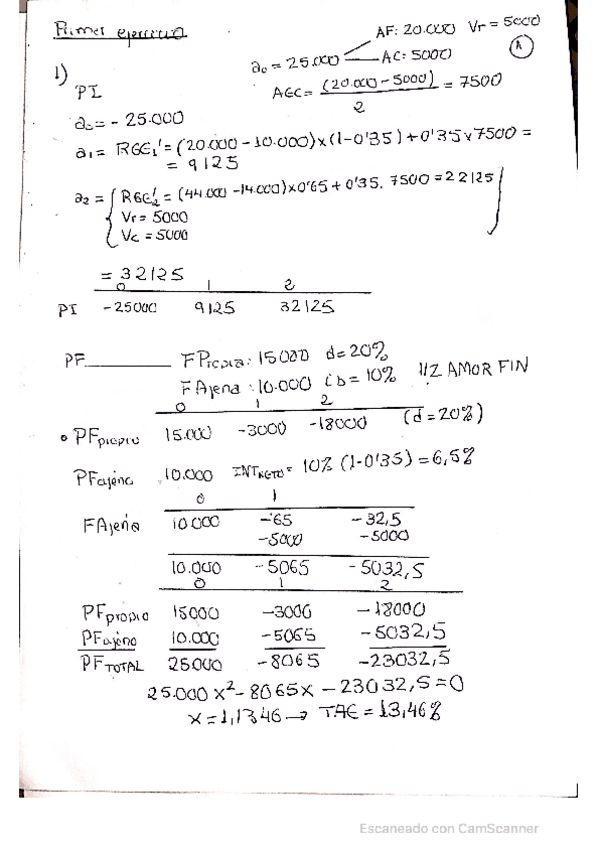 Primer ejercicio
AF: 20.000 Vr = 5000
a₀ = 25.000
AC: 5000
A
1)
PI
AEC = (20.000 - 5000) / 2 = 7500
a₀ = - 25.000
a₁ = RGE₁' = (20.000 - 10.000) x (1-0'35) + 0'35 x 7500 =
= 9125
a₂ = { RGE₂' = (44.000 - 14.000) x 0'65 + 0'35. 7500 = 22125
Vr = 5000
Vc = 5000
= 32125
0 1 2
PI -25000 9125 32125
PF FPropia: 15000 d = 20%
FAjena: 10.000 ib = 10% 1/2 AMOR FIN
0 1 2
• PFpropio 15.000 -3000 -18000 (d = 20%)
PFajeno 10.000 INTNETO = 10% (1-0'35) = 6,5%
0 1
FAjena 10000 -65 -32,5
-5000 -5000
10.000 -5065 -5032,5
0 1 2
PFpropio 15000 -3000 -18000
PFajeno 10.000 -5065 -5032,5
PFTOTAL 25000 -8065 -23032,5
25.000x² - 8065x - 23032,5 = 0
x = 1,1346 → TAE = 13,46%
Escaneado con CamScanner